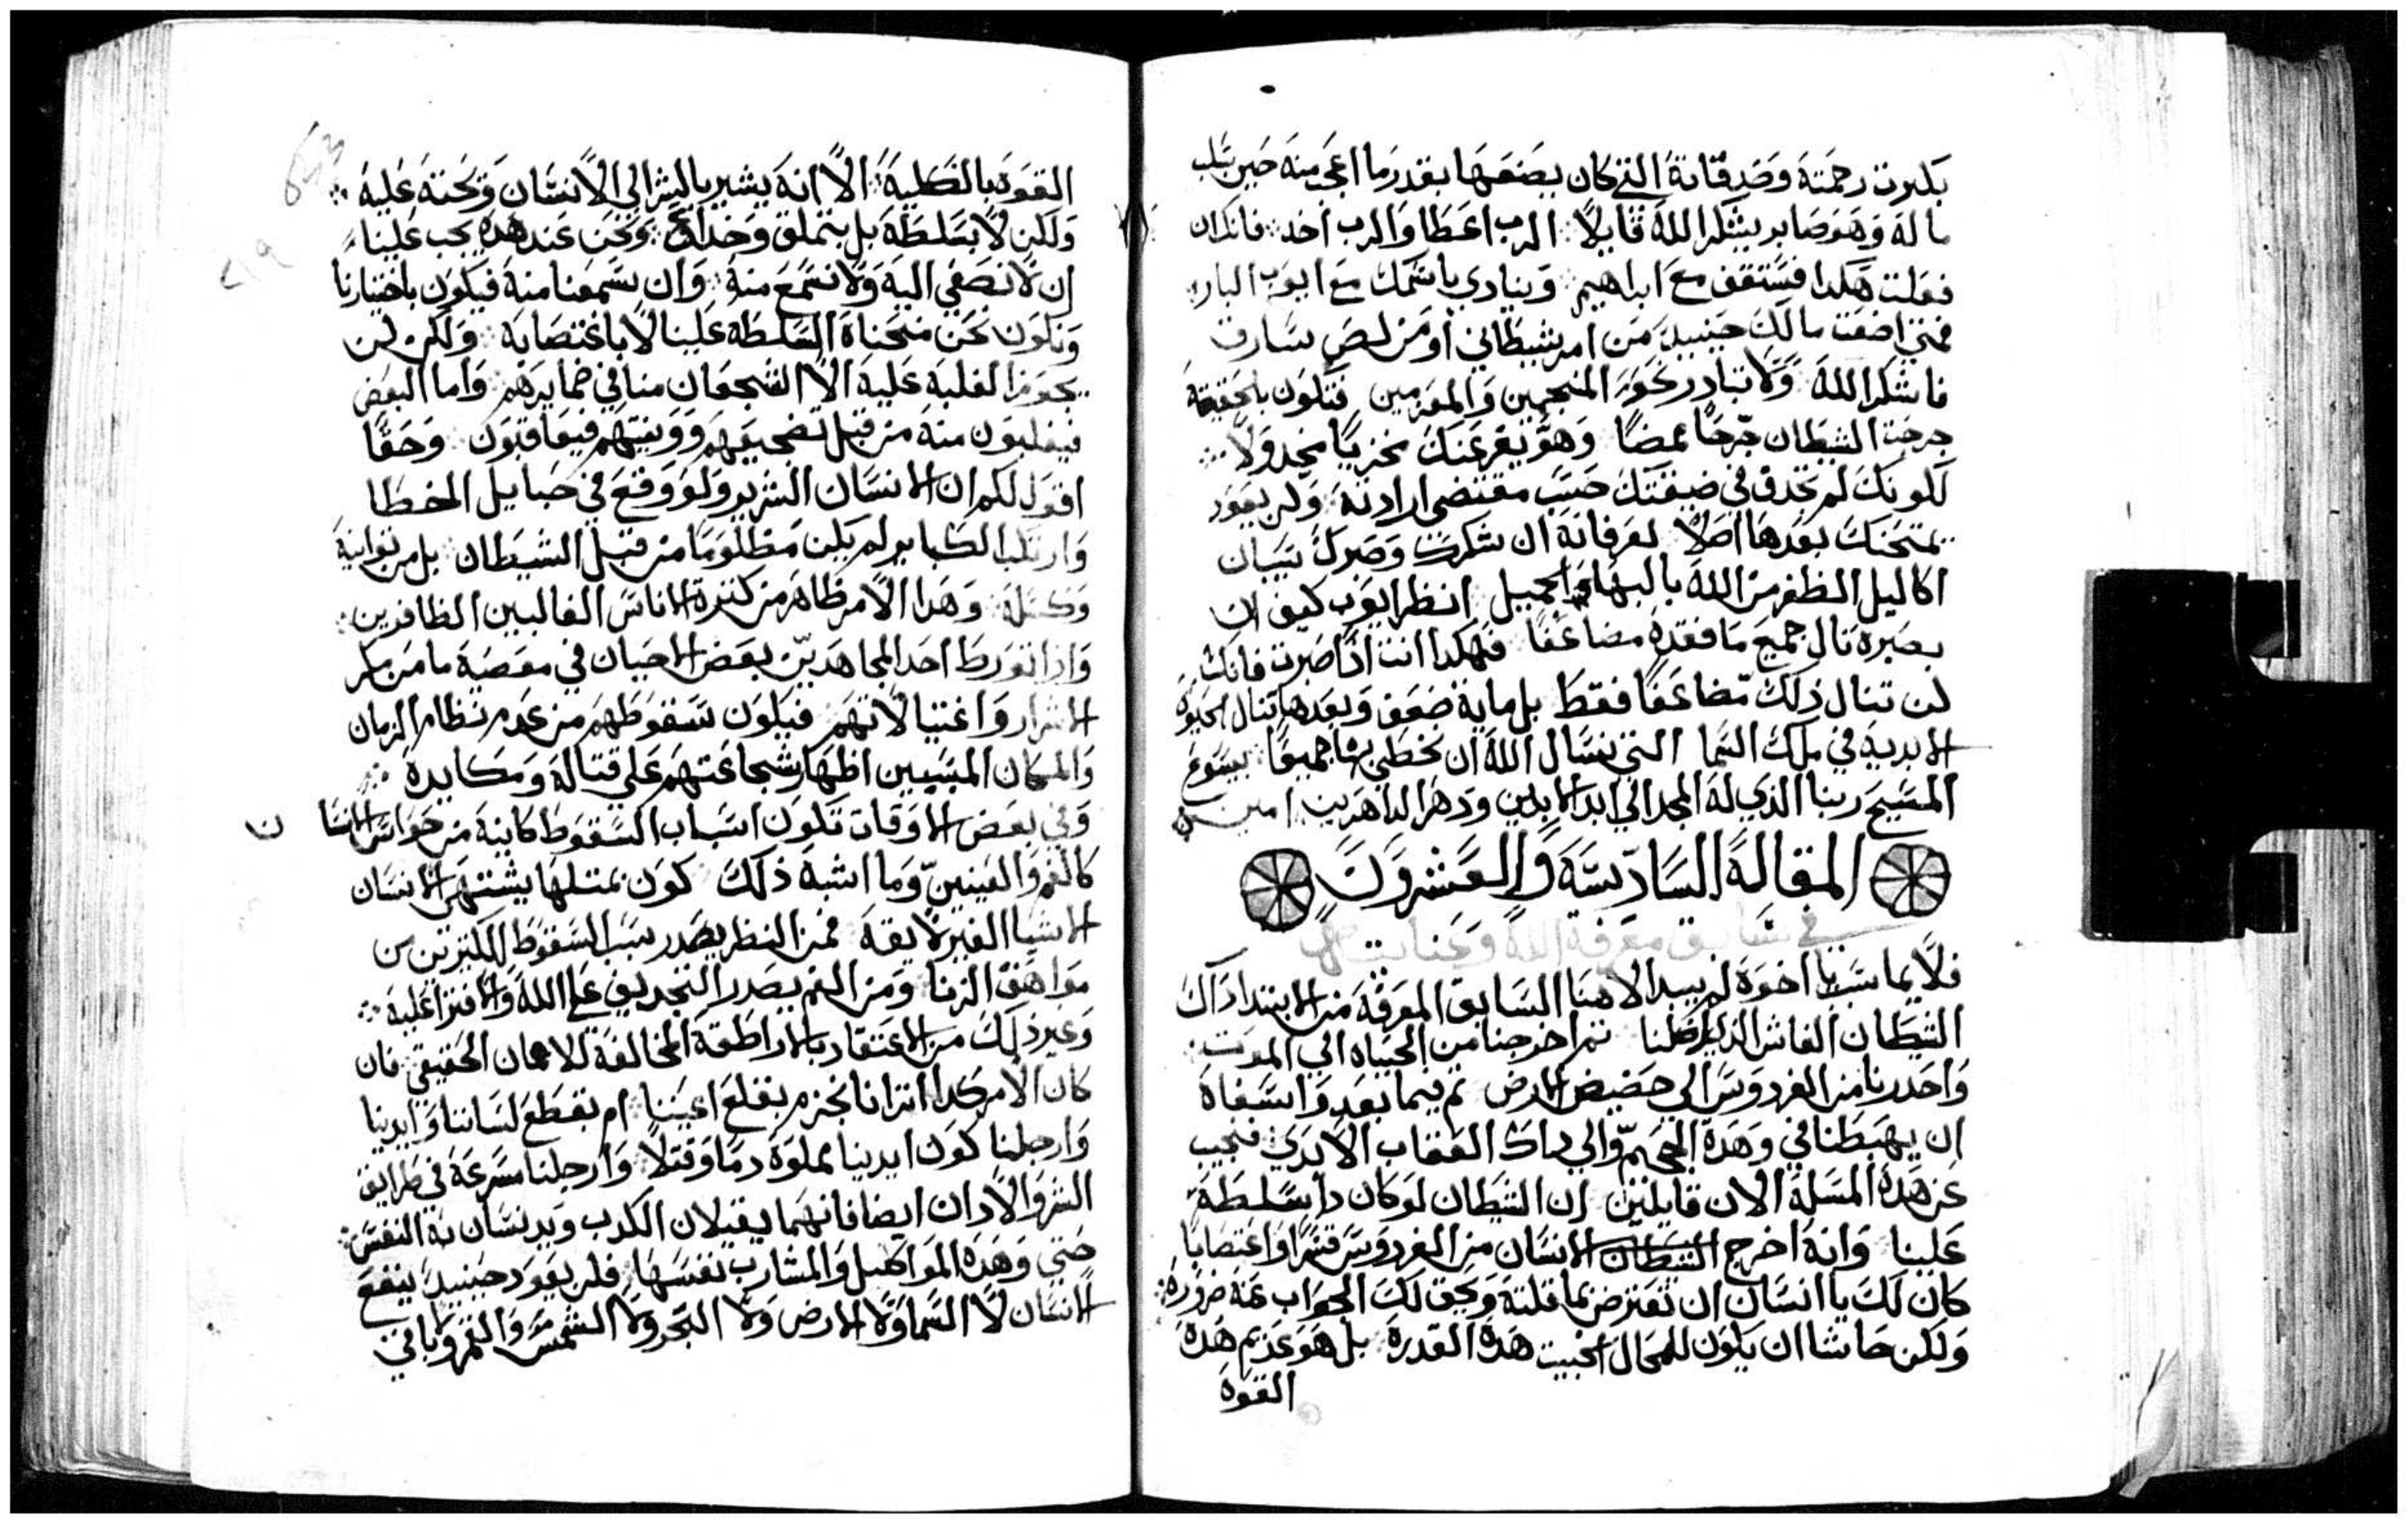 بكثرت رحمته وصدقاته التي كان يصنعها بقدر ما اعجب منه حين سلب
ماله وهو صابر يشكر الله قايلاً الرب اعطا والرب اخد فان كان
فعلت هكدا فستقف مع ابراهيم وينادي باسمك مع ايوب البار
فمتي اضفت مالك حينيد من امر شيطاني او من لص سارق
فاشكر الله ولا تبادر نحو المنجمين والمعزمين فتكون بالحقيقة
جرحت الشيطان جرحًا ممضًا وهو يفر عنك مخزيًا مخدولاً
لكونك لم تجدف في ضيقتك حسب مقتضي ارادته ولن يعود
يمتحنك بعدها اصلاً لعرفانه ان شكرك وصبرك يسببان
اكاليل الظفر من الله بالبها والجميل انظر ايوب كيف ان
بصبره نال جميع ما فقده مضاعفًا فهكدا انت ادا صبرت فانك
لن تنال ذلك مضاعفًا فقط بل ماية ضعف وبعدها تنال الحيوة
الابدية في ملك السما التي نسال الله ان نحظي بها جميعًا بيسوع
المسيح ربنا الذي له المجد الي ابد الابدين ودهر الداهرين امين
المقالة السادسة والعشرون
في سابق معرفة الله وعنايته
فلايما سبب يا اخوة لم يبيد الاهنا السابق المعرفة من الابتدا داك
الشيطان الغاش الذي اضلنا ثم اخرجنا من الحياه الي الموت
واحدرنا من الفردوس الي حضيض الارض ثم فيما بعد واسفاه
ان يهبطنا في وهدة الجحيم والي داك العقاب الابدي فنجيب
عن هده المسلة الان قايلين ان الشيطان لو كان دا سلطة
علينا وانه اخرج الشيطان الانسان من الفردوس قسرًا واغتصابًا
كان لك يا انسان ان تعترض بما قلته ويحق لك الجواب عنه ضرورة
ولكن حاشا ان يكون للمحال الخبيث هده القدرة بل هو عديم هده
القوة
القوة بالكلية الا انه يشير بالشر الي الانسان ويحته عليه
ولكن لا بسلطة بل بتملق وخداع ونحن عند هده يجب علينا
ان لا نصغي اليه ولا نسمع منه وان سمعنا منه فيكون باختيارنا
ونكون نحن منحناه السلطة علينا لا باغتصابه ولكن لن
يحوز الغلبة عليه الا الشجعان منا في ضمايرهم واما البعض
فيغلبون منه من قبل تضجيعهم وونيتهم فيعاقبون وحقًا
اقول لكم ان الانسان الشرير ولو وقع في حبايل الخطا
وارتكب الكباير لم يكن مظلومًا من قبل الشيطان بل من توانيه
وكسله وهدا الامر ظاهر من كثرة الناس الغالبين الظافرين
واذا تورط احد المجاهدين بعض الاحيان في معصية ما من مكر
الاشرار واغتيالاتهم فيكون سقوطهم من عدم نظام الزمان
والمكان المسببين اظهار شجاعتهم علي قتاله ومكايده
وفي بعض الاوقات تكون اسباب السقوط كاينة من حواس الانسان
كالفم والعينين وما اشبه ذلك كون بمتلها يشتهي الانسان
الاشيا الغير لايقة فمن النظر يصدر سبب السقوط للكتيرين من
مواهق الزنا ومن الفم يصدر التجديف علي الله والافترا عليه
وغير ذلك من الاعتقاد بالاراطقة المخالفة للايمان الحقيقي فان
كان الامر كدا اترانا نجزم بقلع اعيننا ام بقطع لساننا وايدينا
وارجلنا كون ايدينا مملوة دمًا وقتلاً وارجلنا مسرعة في طرايق
الشر والادان ايضا فانهما يقبلان الكدب ويدنسان به النفس
حتي وهده المواكيل والمشارب نفسها فلم يعود حينيد ينفع
الانسان لا السما ولا الارض ولا البحر ولا الشمس والقمر وباقي